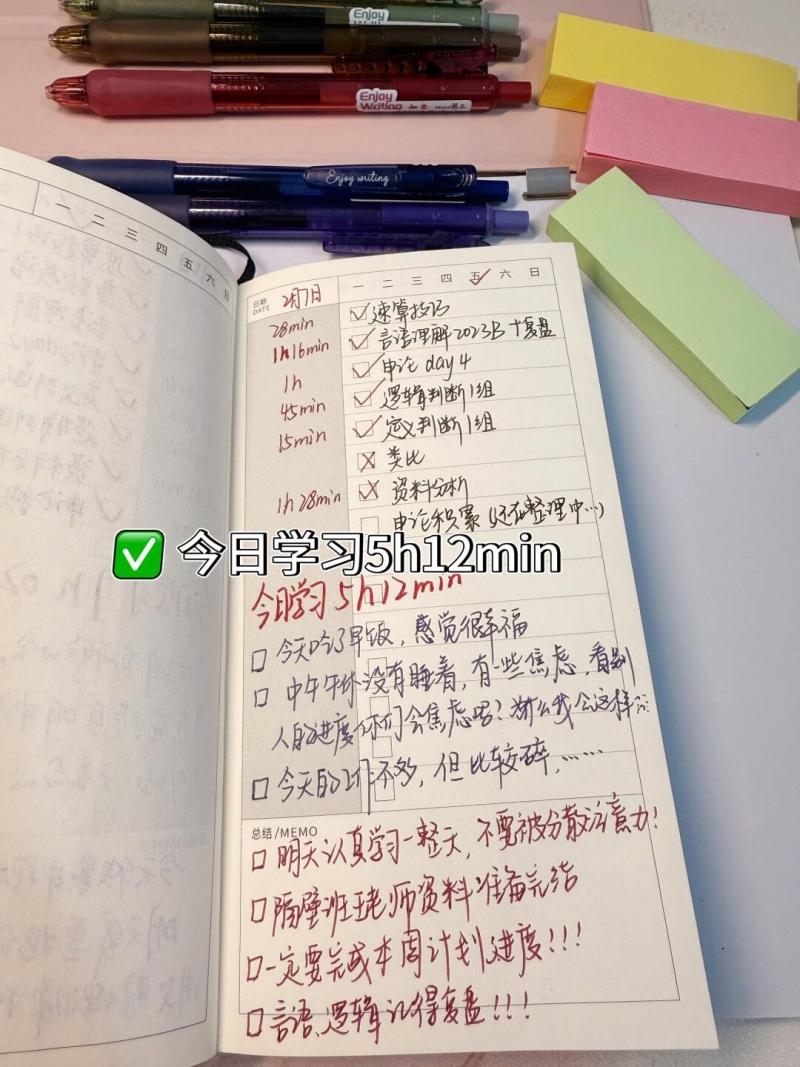 Enjoy
Enjoy
Writing
Enjoy writing
一 二 三 四 五 六 日
日期
DATE
2月7日
一 二 三 四 五 六 日
28min 速算技巧
1h16min 言语理解2023B+复盘
1h 申论 day 4
45min 逻辑判断1组
15min 定义判断1组
类比
1h 28min 资料分析
申论积累(还在整理中…)
✅ 今日学习5h12min
今日学习 5h12min
今天吃了早饭，感觉很幸福
中午午休没有睡着，有一些焦虑，看别
人的进度你们会焦虑吗？为什么我会这样
今天的工作不多，但比较碎，……
总结/MEMO
明天认真学习一整天，不要被分散注意力！
隔壁班王老师资料准备完结
一定要完成本周计划进度！！！
言语、逻辑记得复盘！！！